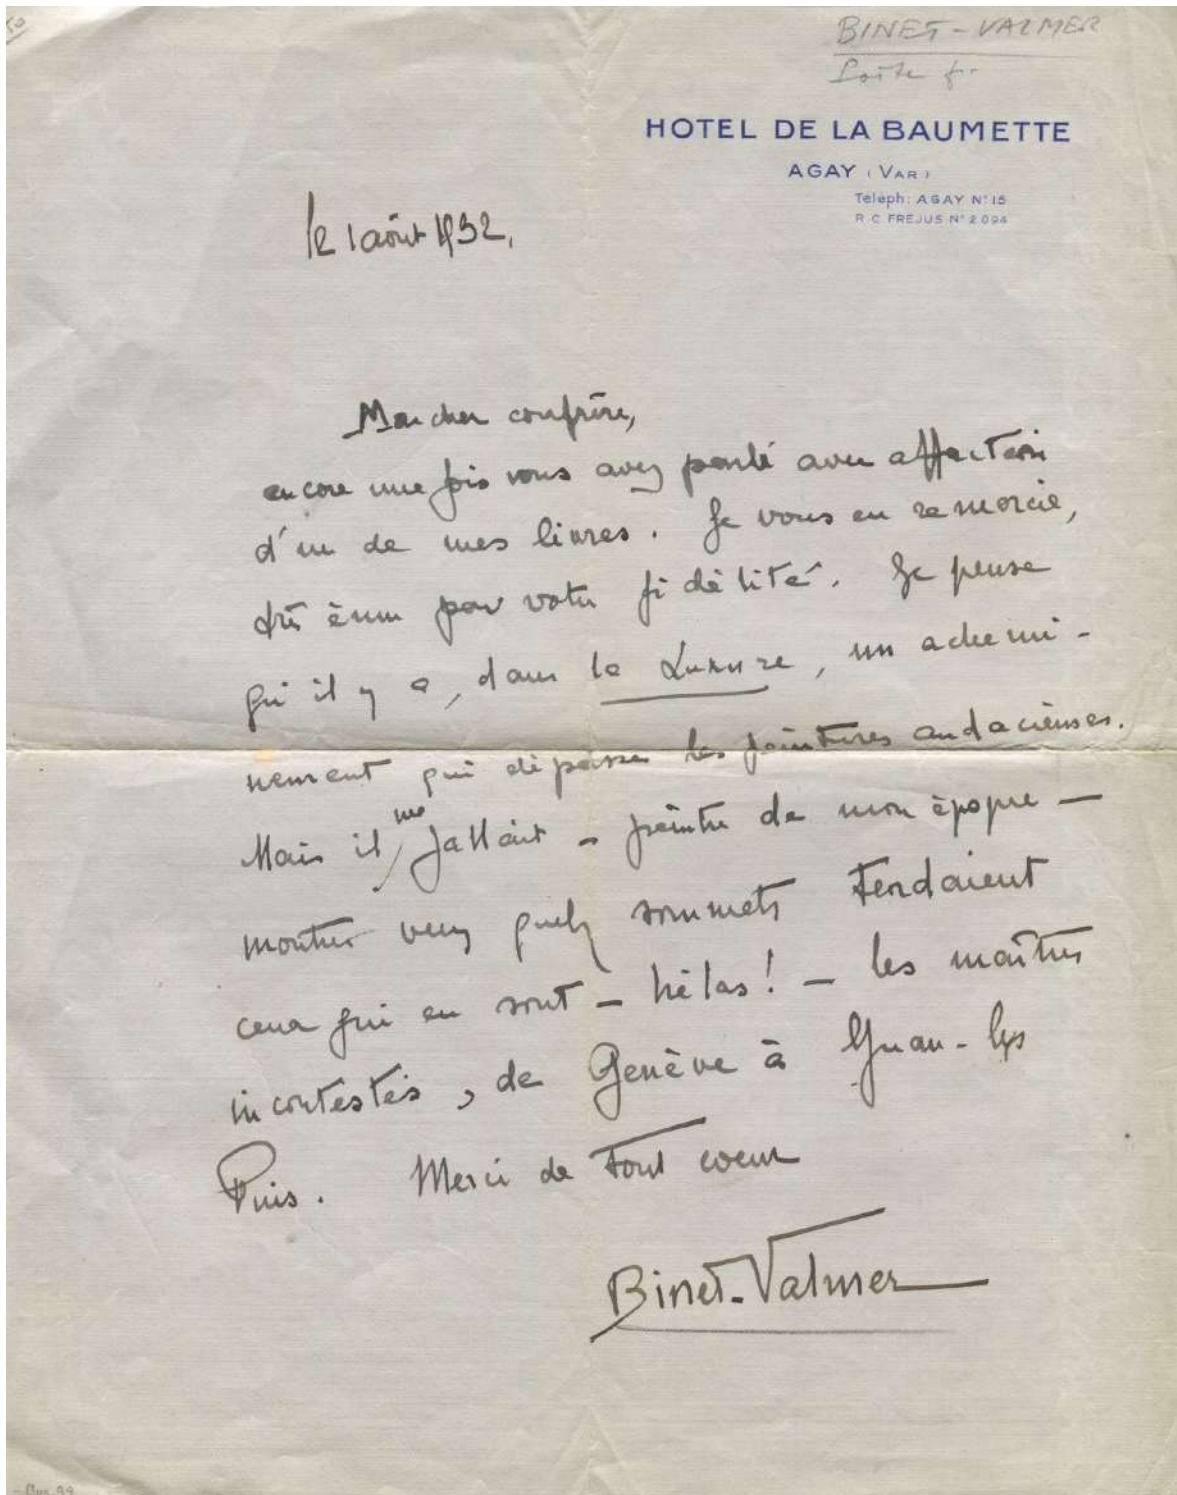 BINET-VALMER
HOTEL DE LA BAUMETTE
AGAY (VAR)
Téléph: AGAY N° 15
R.C. FREJUS N° 2094
le 1 août 1932,
Mon cher confrère,
encore une fois vous avez parlé avec affection
d'un de mes livres. Je vous en remercie,
très ému par votre fidélité. Je pense
qu'il y a, dans la Luxure, un achemi-
nement qui dépasse les peintures audacieuses.
Mais il me fallait - peintre de mon époque -
montrer vers quels sommets tendaient
ceux qui en sont - hélas! - les maîtres
incontestés, de Genève à Juan-les
Pins. Merci de tout coeur
Binet-Valmer